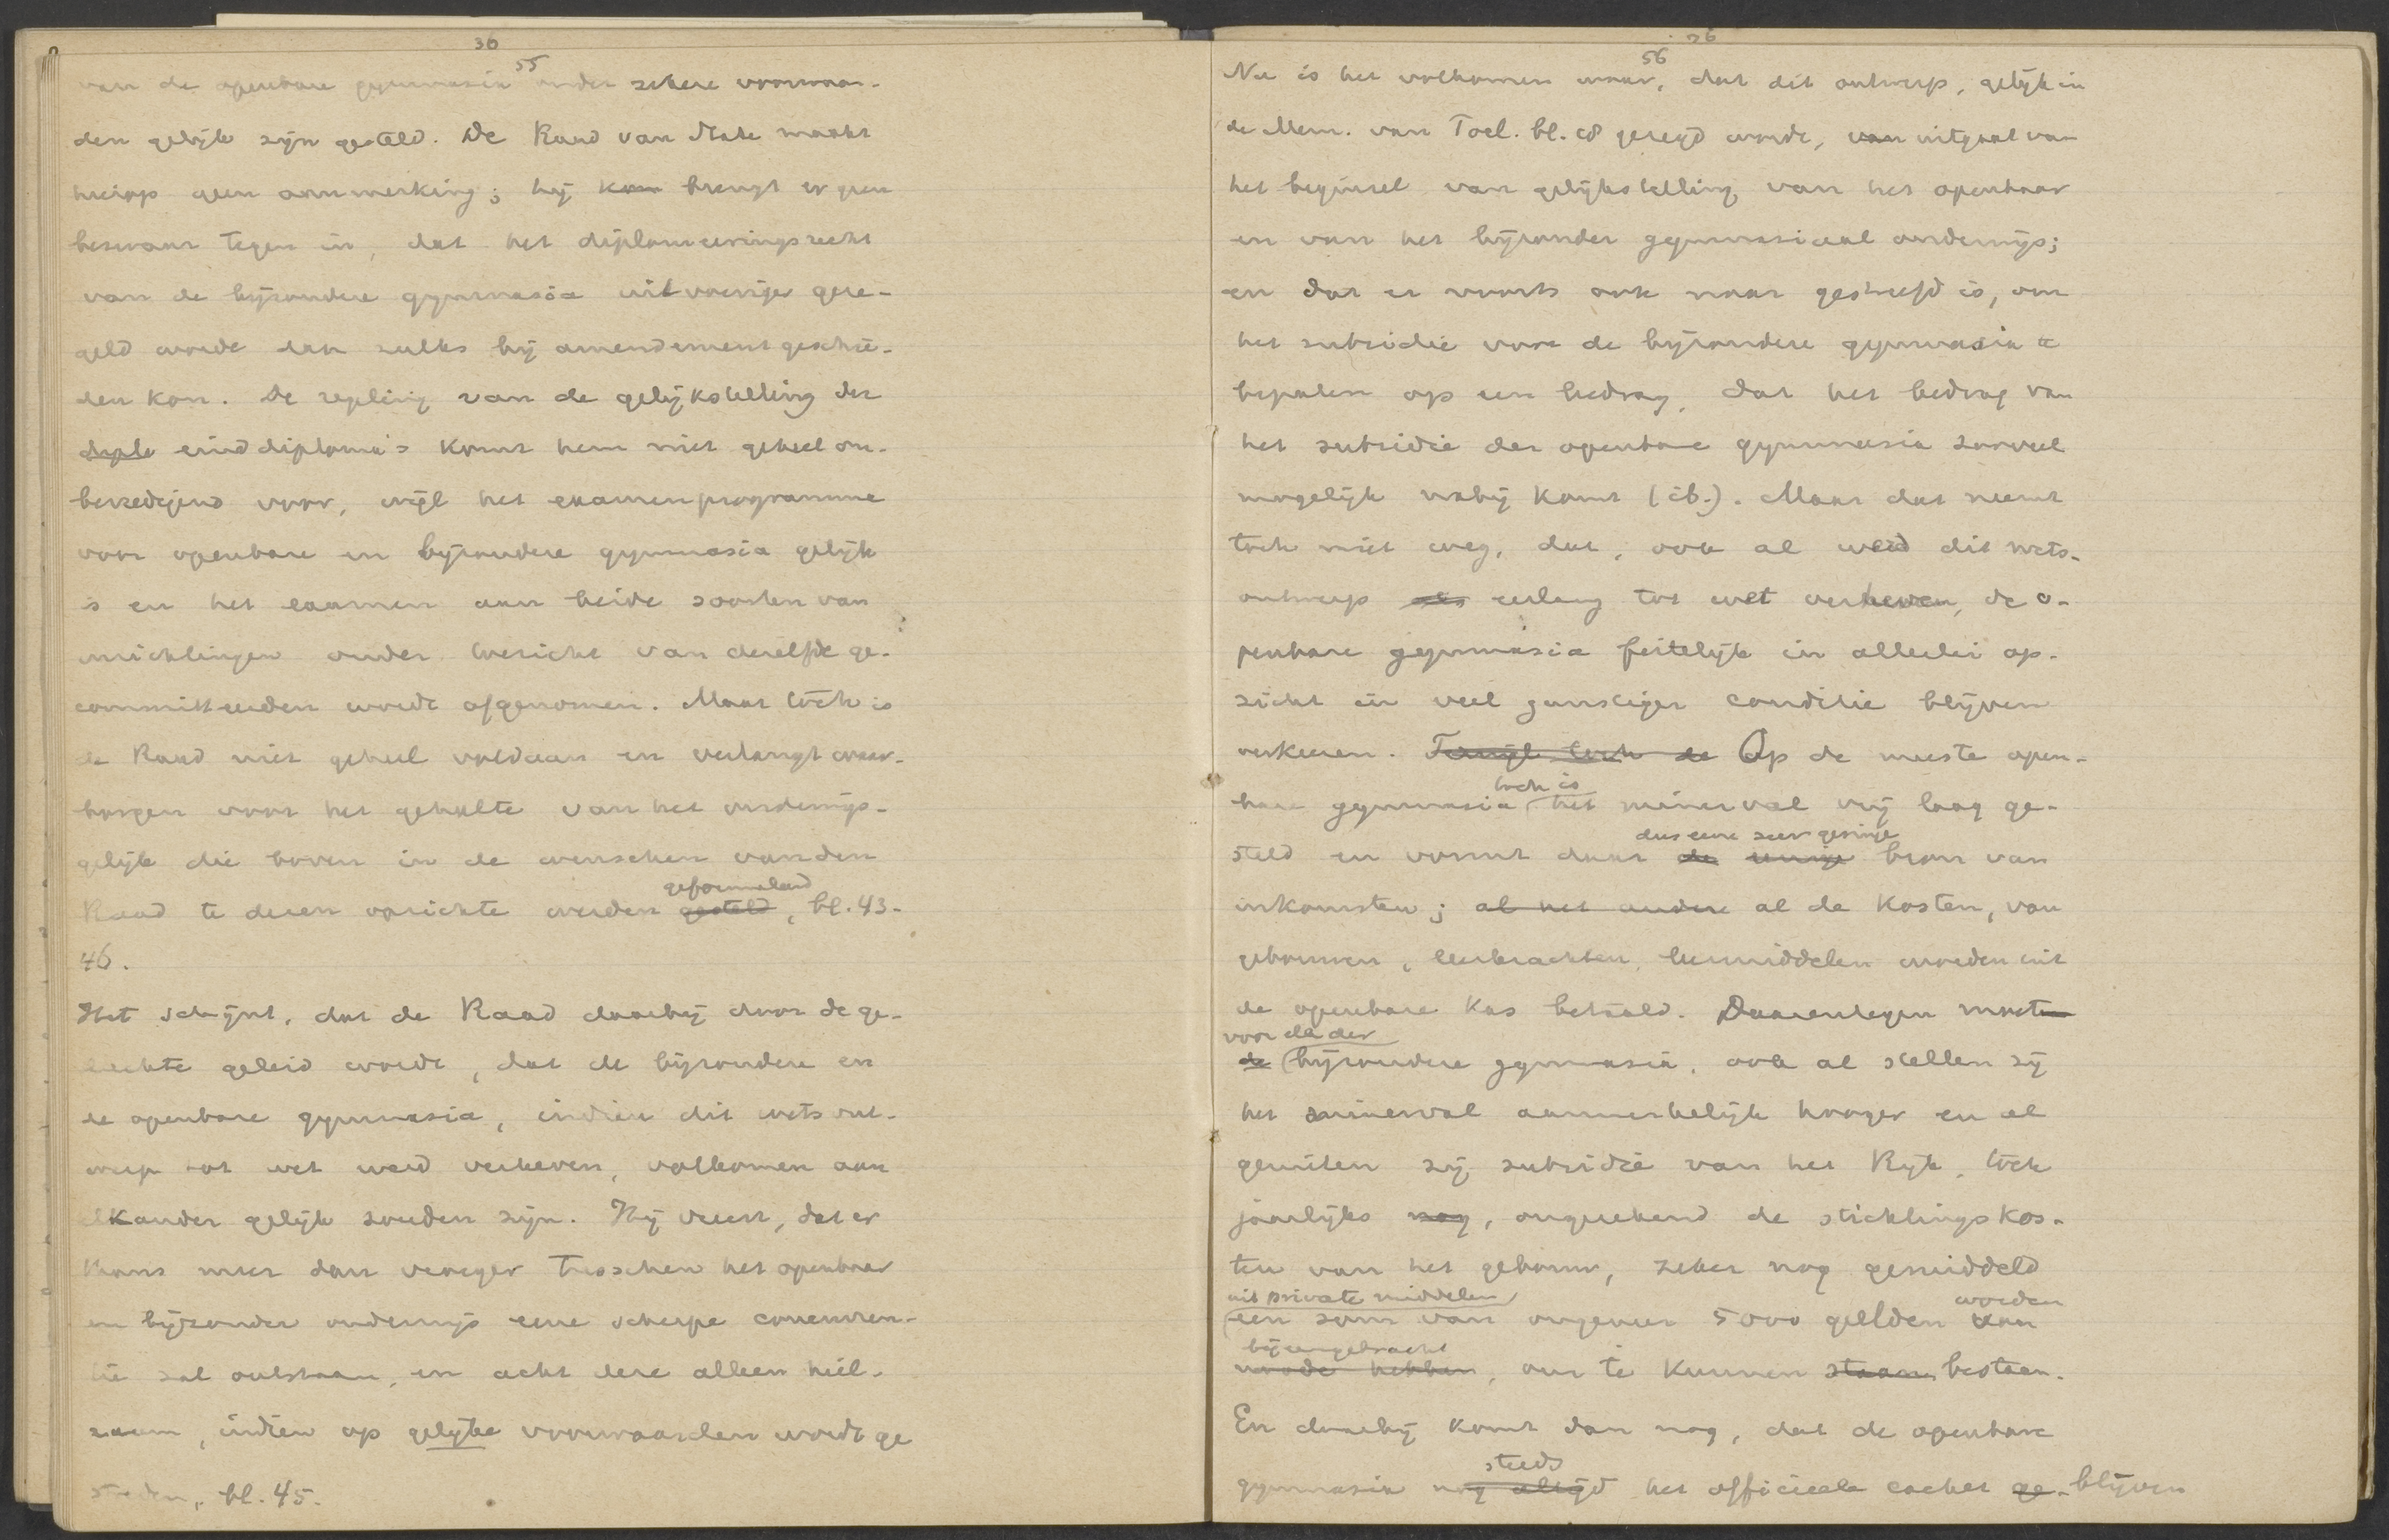 36
55
van de openbare gymnasia onder zekere voorwaar-
den gelijk zijn gesteld. De Raad van State maakt
hierop geen aanmerking; hij kan brengt er geen
bezwaar tegen in, dat het diplomeeringsrecht
van de bijzondere gymnasia uitvoeriger gere-
geld worde dan zulks bij amendement geschie-
den kon. De regeling van de gelijkstelling der
diplo einddiploma's komt hem niet geheel on-
bevredigend voor, wijl het examenprogramma
voor openbare en bijzondere gymnasia gelijk
is en het examen aan beide soorten van
inrichtingen onder toezicht van dezelfde ge-
committeerden wordt afgenomen. Maar tòch is
de Raad niet geheel voldaan en verlangt waar-
borgen voor het gehalte van het onderwijs-
gelijk die boven in de wenschen van den
geformuleerd
Raad te dezen opzichte werden gesteld, bl. 43-
46.
Het schijnt, dat de Raad daarbij door de ge-
dachte geleid wordt, dat de bijzondere en
de openbare gymnasia, indien dit wetsont-
werp tot wet werd verheven, volkomen aan
elkander gelijk zouden zijn. Hij vreest, dat er
thans meer dan vroeger tusschen het openbaar
en bijzonder onderwijs eene scherpe concurren-
tie zal ontstaan, en acht deze alleen heil-
zaam, indien op gelijke voorwaarden wordt ge
streden, bl. 45.
36
56
Nu is het volkomen waar, dat dit ontwerp, gelijk in
de Mem. van Toel. bl. 18 gezegd wordt, van uitgaat van
het beginsel van gelijkstelling van het openbaar
en van het bijzonder gymnasiaal onderwijs;
en dat er voorts ook naar gestreefd is, om
het subsidie voor de bijzondere gymnasia te
bepalen op een bedrag, dat het bedrag van
het subsidie der openbare gymnasia zooveel
mogelijk nabij komt (ib.). Maar dat neemt
toch niet weg, dat, ook al werd dit wets-
ontwerp eerlang tot wet verheven, de o-
penbare gymnasia feitelijk in allerlei op-
zicht in veel gunstiger conditie blijven
verkeeren. Terwijl toch de Op de meeste open-
toch is
bare gymnasia het minerval vrij laag ge-
dus eene zeer geringe
steld en vormt daar de eenige bron van
inkomsten; al het andere al de kosten, van
gebouwen, leerkrachten, leermiddelen worden uit
de openbare kas betaald. Daarentegen moeten
voor de der
de bijzondere gymnasia, ook al stellen zij
het minerval aanmerkelijk hooger en al
genieten zij subsidie van het Rijk, tòch
jaarlijks nog, ongerekend de stichtingskos-
ten van het gebouw, zeker nog gemiddeld
uit private middelen worden
een som van ongeveer 5000 gulden aan
bijeengebracht
noode hebben, om te kunnen staan bestaan.
En daarbij komt dan nog, dat de openbare
steeds
gymnasia nog altijd het officieele cachet ge- blijven